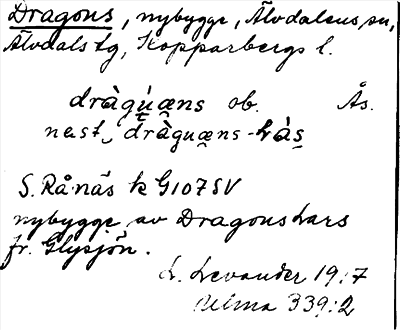 Dragons, nybygge, Älvdalens sn,
Älvdals tg, Kopparbergs l.
dràgu̯æns ob. Ås.
nast, dràguæns-
S. Rånäs k G107SV
nybygge av Dragons Lars
fr. Glysjön.
L. Levander 19:7
Ulma 339:2